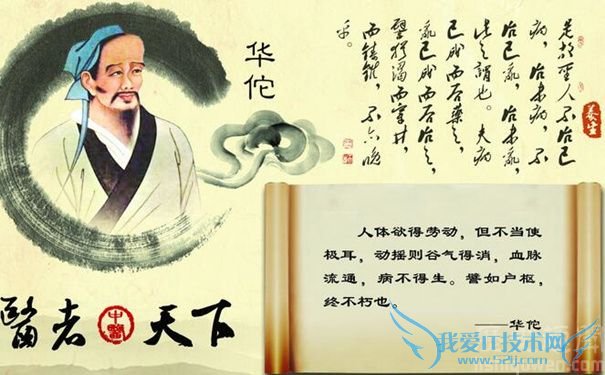 华佗
是故聖人不治已
病，治未病，不
治已亂，治未亂，
此之謂也。夫病
已成而后藥之，
亂已成而后治之，
譬猶渴而穿井，
而鑄錐，不亦晚
乎。
養生
人体欲得劳动，但不当使
极耳，动摇则谷气得消，血脉
流通，病不得生。譬如户枢，
终不朽也。
——华佗
醫者 中醫 天下
我爱IT技术网